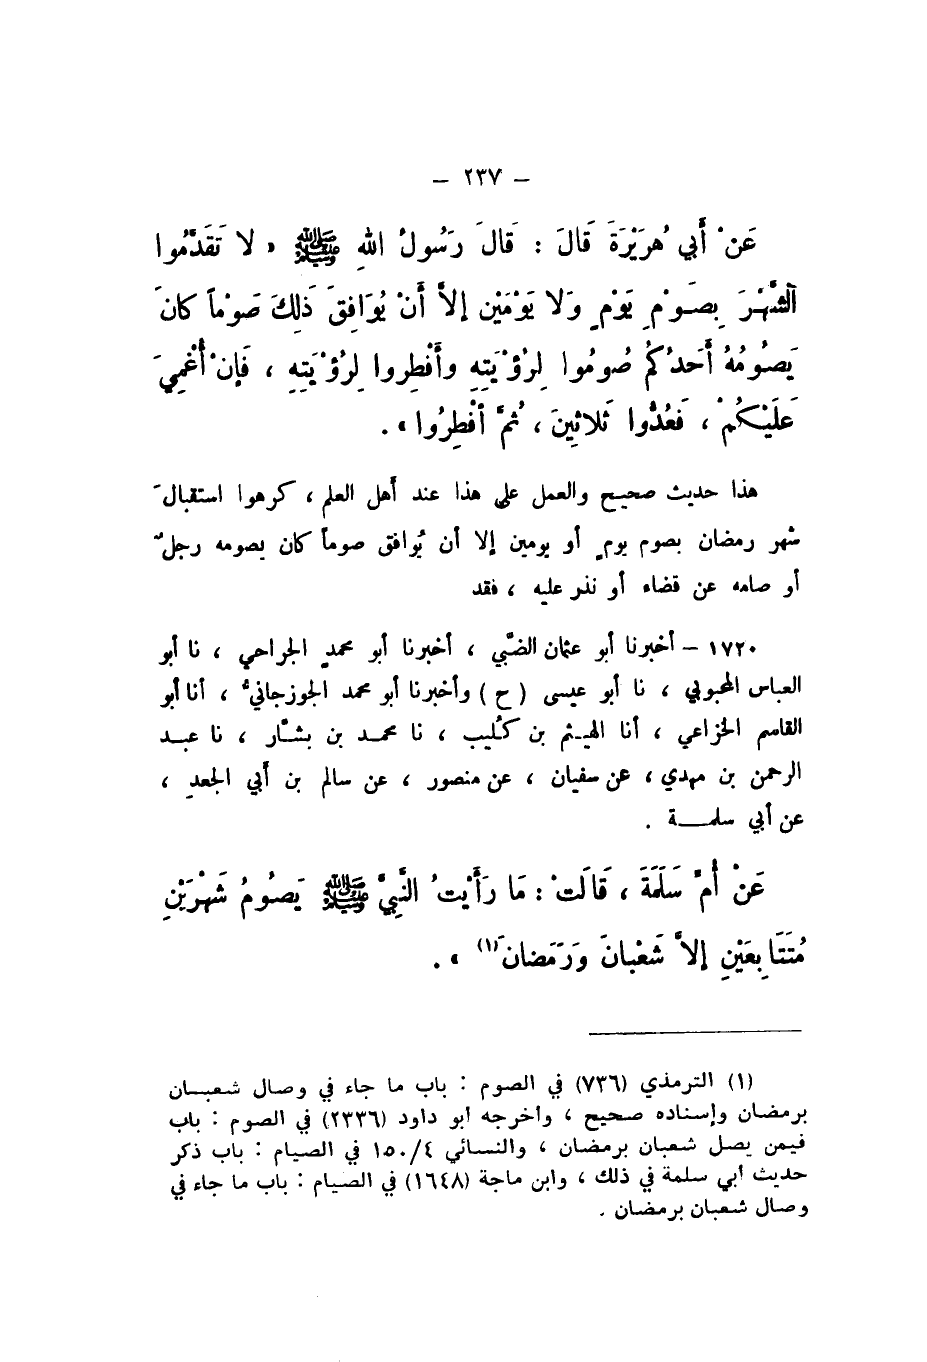 – ٢٣٧ –
عَنْ أَبي هُرَيْرَةَ قَالَ : قَالَ رَسُولُ اللهِ ﷺ « لا تَقَدَّمُوا
الشَّهْرَ بِصَوْمِ يَوْمٍ وَلا يَوْمَيْنِ إلاَّ أَنْ يُوَافِقَ ذٰلِكَ صَوْماً كانَ
يَصُومُهُ أَحَدُكُمْ صُومُوا لِرُؤْيَتِهِ وأَفْطِروا لِرُؤْيَتِهِ ، فَإن أُغْمِيَ
عَلَيْكُمْ ، فَعُدُّوا ثَلاثِينَ ، ثُمَّ أفْطِرُوا » .
هذا حديث صحيح والعمل على هذا عند أهل العلم ، كرهوا استقبالَ
شهر رمضان بصوم يومٍ أو يومين إلا أن يُوافق صوماً كان يصومه رجلٌ
أو صامه عن قضاء أو نذر عليه ، فقد
١٧٢٠ – أخبرنا أبو عثمان الضبّي ، أخبرنا أبو محمدٍ الجراحي ، نا أبو
العباس المحبوبي ، نا أبو عيسى ( ح ) وأخبرنا أبو محمد الجوزجانيُّ ، أنا أبو
القاسم الخزاعي ، أنا الهيـثم بن كُليب ، نا محمـد بن بشّـار ، نا عبـد
الرحمن بن مهدي ، عن سفيان ، عن منصور ، عن سالم بن أبي الجعدِ ،
عن أبي سلمـــة .
عَنْ أُمِّ سَلَمَةَ ، قَالَتْ : مَا رَأَيْتُ النَّبِيَّ ﷺ يَصُومُ شَهْرَيْنِ
مُتَتَابِعَيْنِ إلاَّ شَعْبانَ وَرَمَضانَ (١) » .
(١) الترمذي (٧٣٦) في الصوم : باب ما جاء في وصال شعبـان
برمضان وإسناده صحيح ، وأخرجه أبو داود (٢٣٣٦) في الصوم : باب
فيمن يصل شعبان برمضان ، والنسائي ١٥٠/٤ في الصيام : باب ذكر
حديث أبي سلمة في ذلك ، وابن ماجة (١٦٤٨) في الصيام : باب ما جاء في
وصال شعبان برمضان .